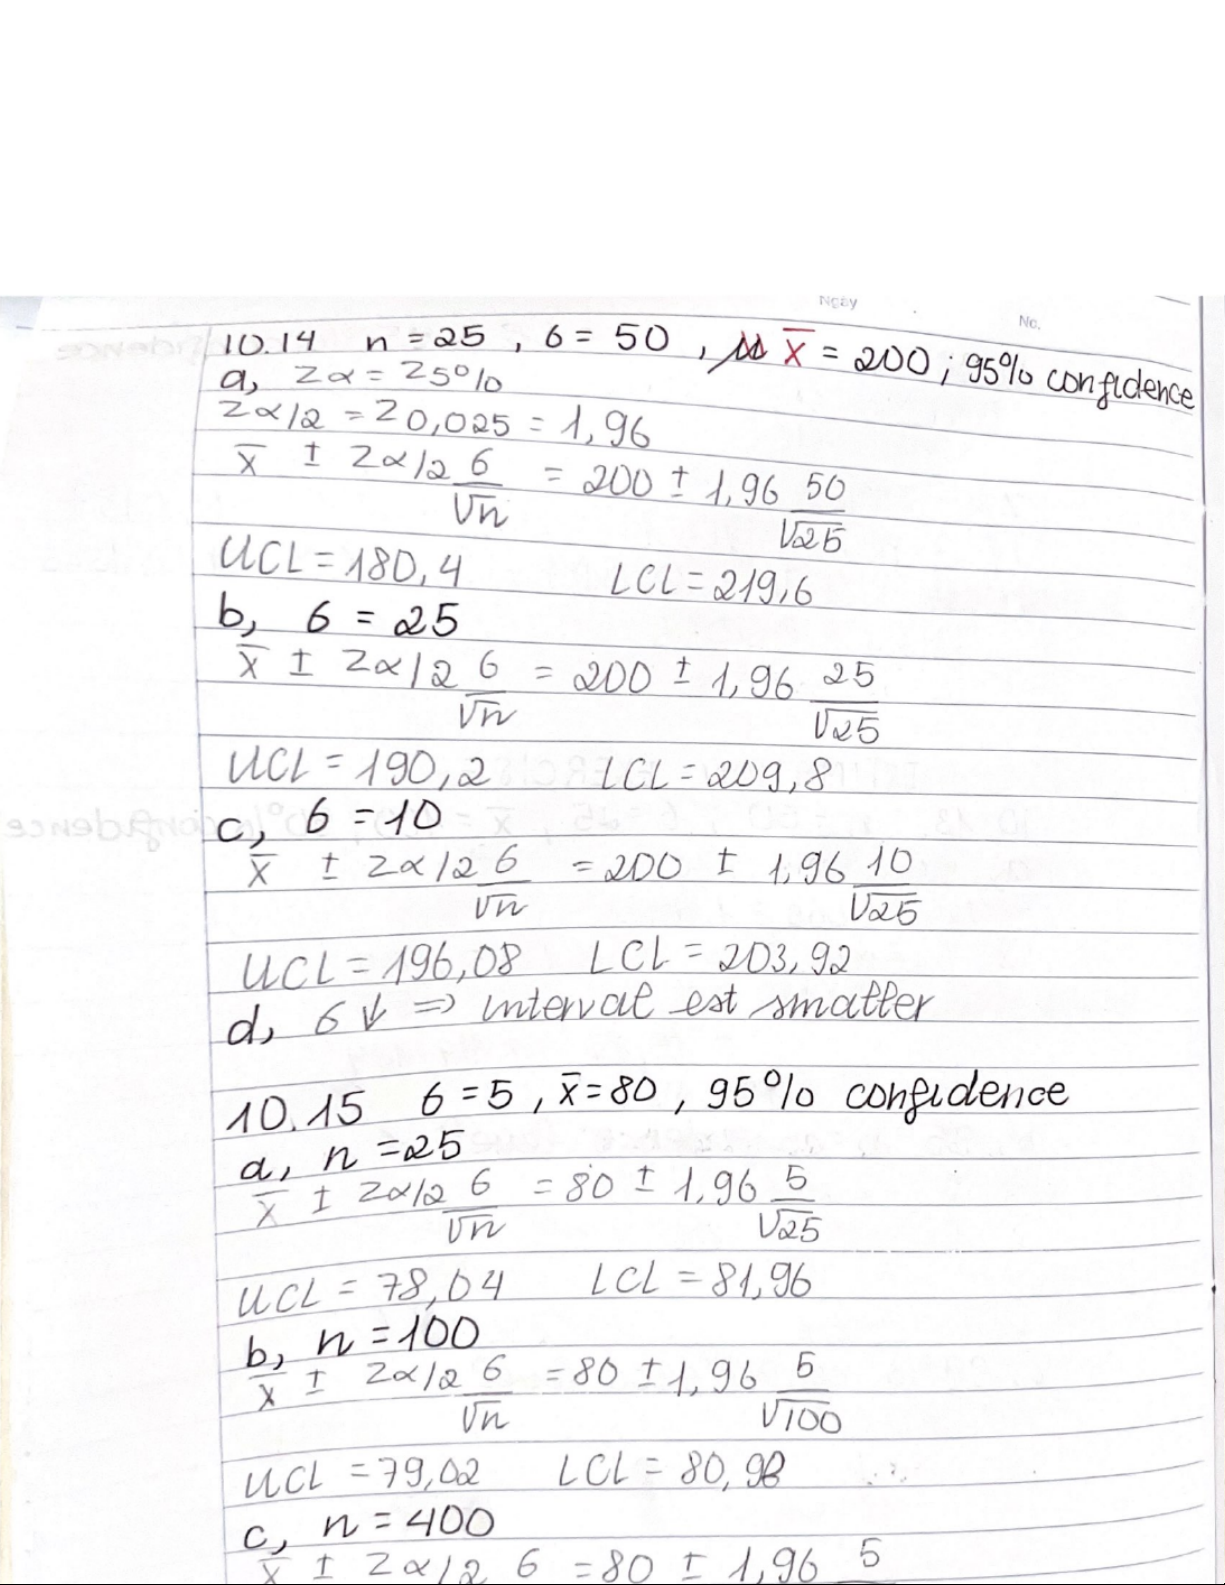 Ngày
No.
10.14 n = 25 , 6 = 50 , x̄ = 200 ; 95% confidence
a, Zα = Z5%
Zα/2 = Z0,025 = 1,96
x̄ ± Zα/2 6/√n = 200 ± 1,96 50/√25
UCL = 180,4 LCL = 219,6
b, 6 = 25
x̄ ± Zα/2 6/√n = 200 ± 1,96 25/√25
UCL = 190,2 LCL = 209,8
c, 6 = 10
x̄ ± Zα/2 6/√n = 200 ± 1,96 10/√25
UCL = 196,08 LCL = 203,92
d, 6 ↓ => interval est smaller
10.15 6 = 5 , x̄ = 80 , 95% confidence
a, n = 25
x̄ ± Zα/2 6/√n = 80 ± 1,96 5/√25
UCL = 78,04 LCL = 81,96
b, n = 100
x̄ ± Zα/2 6/√n = 80 ± 1,96 5/√100
UCL = 79,02 LCL = 80,98
c, n = 400
x̄ ± Zα/2 6 = 80 ± 1,96 5